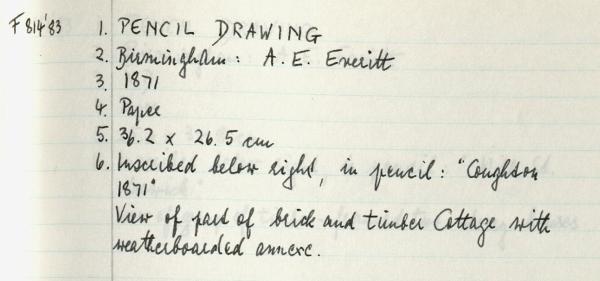 F814'83 1. PENCIL DRAWING
2. Birmingham: A. E. Everitt
3. 1871
4. Paper
5. 36.2 x 26.5 cm
6. Inscribed below right, in pencil: "Coughton
1871"
View of part of brick and timber Cottage with
weatherboarded annexe.